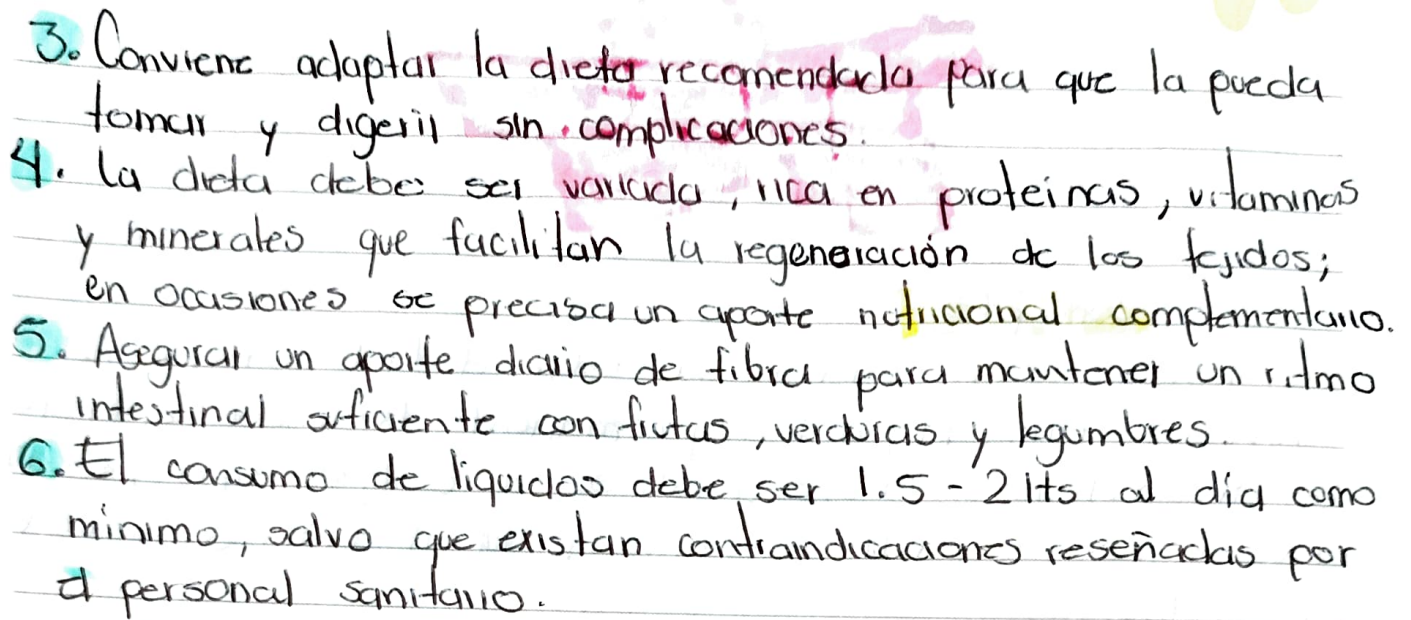 3. Conviene adaptar la dieta recomendada para que la pueda
tomar y digerir sin complicaciones.
4. La dieta debe ser variada, rica en proteinas, vitaminas
y minerales que facilitan la regeneración de los tejidos;
en ocasiones se precisa un aporte nutricional complementario.
5. Asegurar un aporte diario de fibra para mantener un ritmo
intestinal suficiente con frutas, verduras y legumbres.
6. El consumo de liquidos debe ser 1.5 - 2 lts al día como
minimo, salvo que existan contraindicaciones reseñadas por
el personal sanitario.